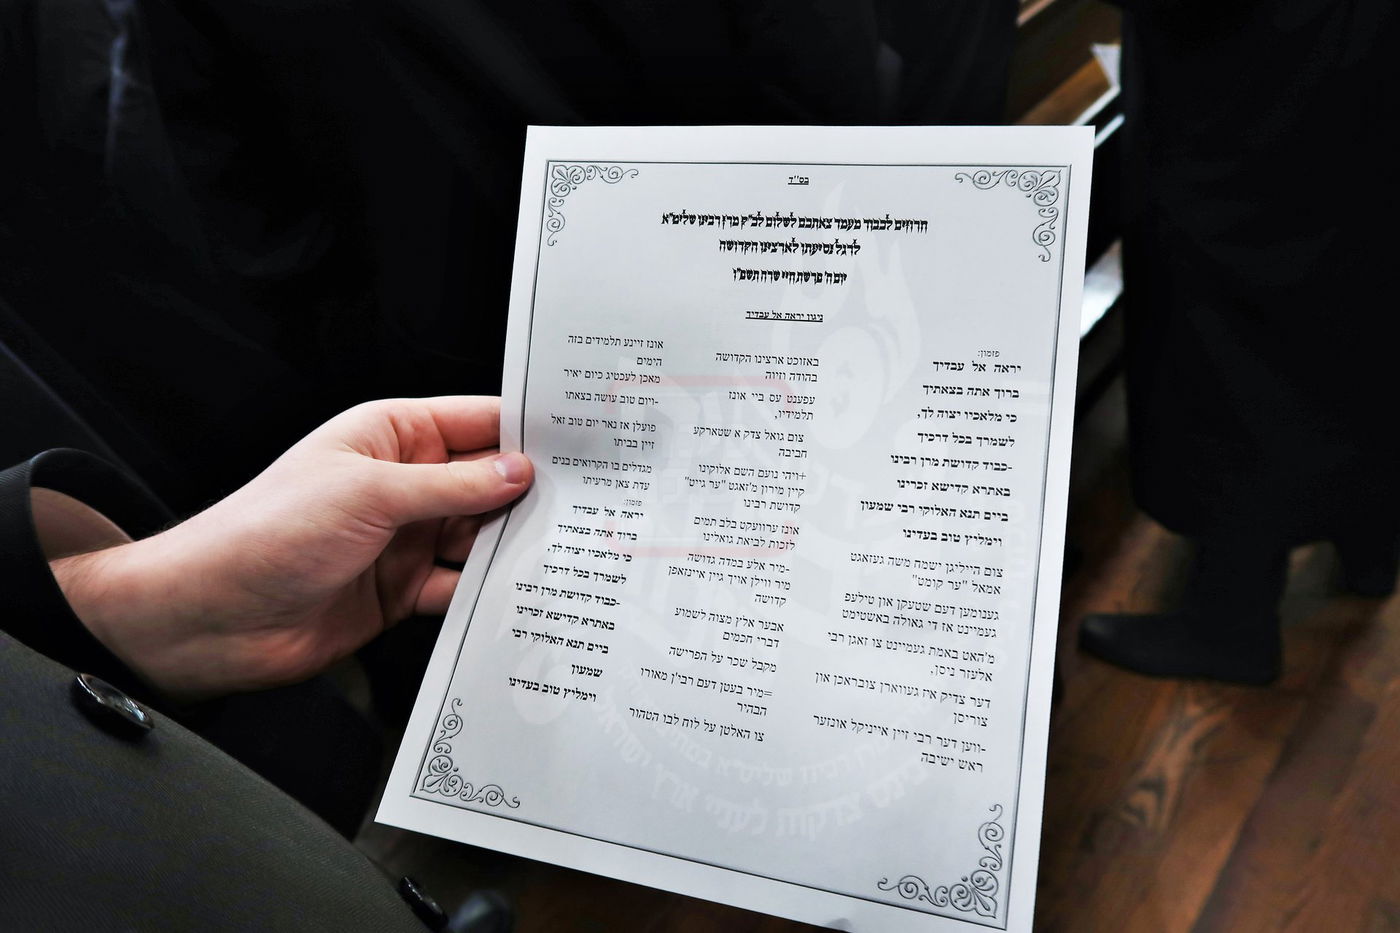 בס''ד
חרוזים לכבוד מעמד צאתכם לשלום לכ"ק מרן רבינו שליט"א
לרגל נסיעתו לארצינו הקדושה
יום ה' פרשת חיי שרה תשפ"ו
ניגון יראה אל עבדיך
פזמון:
יראה אל עבדיך
ברוך אתה בצאתיך
כי מלאכיו יצוה לך,
לשמרך בכל דרכיך
-כבוד קדושת מרן רבינו
באתרא קדישא זכרינו
ביים תנא האלוקי רבי שמעון
וימליץ טוב בעדינו
צום הייליגן ישמח משה געזאגט
אמאל "ער קומט"
גענומען דעם שטעקן און טילעפ
געמיינט אז די גאולה באשטימט
מ'האט באמת געמיינט צו זאגן רבי
אלעזר ניסן,
דער צדיק איז געווארן צובראכן און
צוריסן
-ווען דער רבי זיין אייניקל אונזער
ראש ישיבה
באזוכט ארצינו הקדושה
בהודה וזיוה
עפענט עס ביי אונז
תלמידיו,
צום גואל צדק א שטארקע
חביבה
+ויהי נועם השם אלוקינו
קיין מירון מ'זאגט "ער גייט"
קדושת רבינו
אונז ערוועקט בלב תמים
לזכות לביאת גואלינו
-מיר אלע במדה גדושה
מיר ווילן אויך גיין איינזאפן
קדושה
אבער אלץ מצוה לשמוע
דברי חכמים
מקבל שכר על הפרישה
=מיר בעטן דעם רבי'ן מאורו
הבהיר
צו האלטן על לוח לבו הטהור
אונז זיינע תלמידים בזה
הימים
מאכן לעכטיג כיום יאיר
-ויום טוב עושה בצאתו
פועלן אז נאר יום טוב זאל
זיין בביתו
מגדלים בו הקרואים בנים
עדת צאן מרעיתו
פזמון:
יראה אל עבדיך
ברוך אתה בצאתיך
כי מלאכיו יצוה לך,
לשמרך בכל דרכיך
-כבוד קדושת מרן רבינו
באתרא קדישא זכרינו
ביים תנא האלוקי רבי
שמעון
וימליץ טוב בעדינו